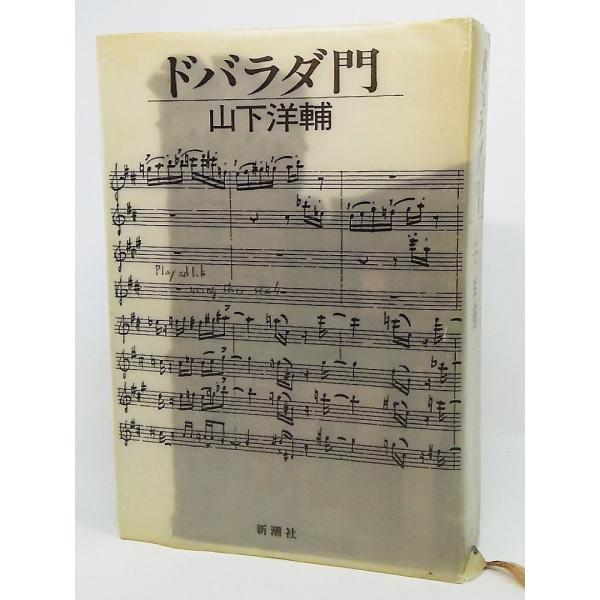 ドバラダ門
山下洋輔
Play ad lib
using this scale
新潮社